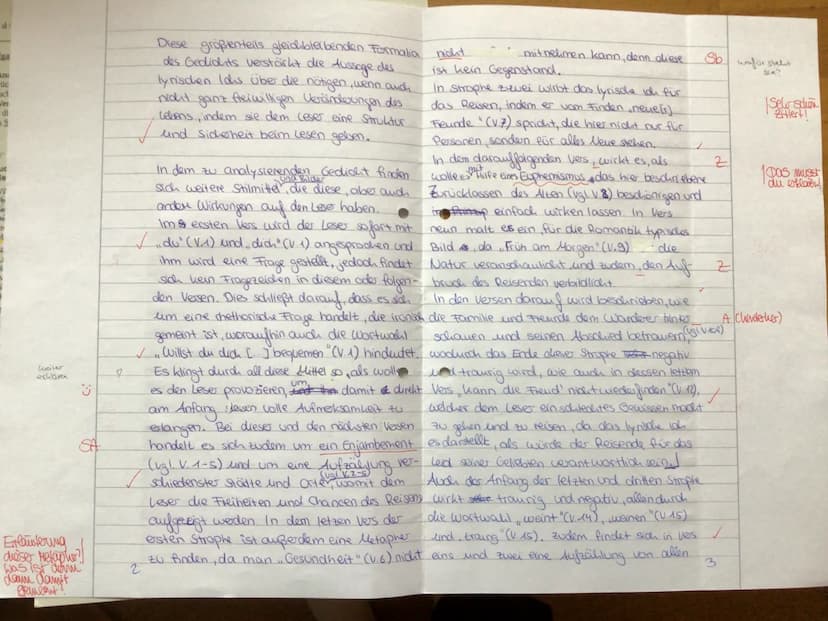 Diese größtenteils gleichbleibenden Formalia
des Gedichts verstärkt die Aussage des
lyrischen Ichs über die nötigen, wenn auch
nicht ganz freiwilligen Veränderungen des
Lebens, indem sie dem Leser eine Struktur
und Sicherheit beim Lesen geben.
In dem zu analysierenden Gedicht finden
sich weitere Stilmittel und Bilder, die diese, aber auch
andere Wirkungen auf den Leser haben.
Im ersten Vers wird der Leser sofort mit
"du" (V.1) und "dich" (V.1) angesprochen und
ihm wird eine Frage gestellt, jedoch findet
sich kein Fragezeichen in diesem oder folgen-
den Versen. Dies schließt darauf, dass es sich
um eine rhethorische Frage handelt, die ironisch
gemeint ist, woraufhin auch die Wortwahl
"Willst du dich [...] bequemen" (V.1) hindeutet.
Es klingt durch all diese Mittel so, als wolle
es den Leser provozieren, um damit direkt
am Anfang dessen volle Aufmerksamkeit zu
erlangen. Bei dieser und den nächsten Versen
handelt es sich zudem um ein Enjambement
(vgl. V. 1-5) und um eine Aufzählung ver-
schiedenster Städte und Orte (vgl. V.2-5), womit dem
Leser die Freiheiten und Chancen des Reisens
aufgezeigt werden. In dem letzten Vers der
ersten Strophe ist außerdem eine Metapher
zu finden, da man "Gesundheit" (V.6) nicht
weiter
erklären
SA
Erläuterung
dieser Metapher?!
was ist denn
dann damit
gemeint!
2
nicht mitnehmen kann, denn diese
ist kein Gegenstand.
In Strophe zwei wirbt das lyrische Ich für
das Reisen, indem er vom Finden "neue[r]
Freunde" (V.7) spricht, die hier nicht nur für
Personen, sondern für alles Neue stehen.
In dem darauffolgenden Vers, wirkt es, als
wolle es mit Hilfe eines Euphemismus das hier beschriebene
Zurücklassen des Alten (vgl. V.8) beschönigen und
einfach wirken lassen. In Vers
neun malt es ein, für die Romantik typisches
Bild, da "Früh am Morgen" (V.9) die
Natur veranschaulicht und zudem, den Auf-
bruch des Reisenden verbildlicht.
In den Versen darauf wird beschrieben, wie
die Familie und Freunde dem Wanderer hinter
schauen und seinen Abschied betrauern,
wodurch das Ende dieser Strophe negativ
und traurig wird, wie auch in dessen letztem
Vers "kann die Freud' nicht wiederfinden" (V.12),
welcher dem Leser ein schlechtes Gewissen macht
zu gehen und zu reisen, da das lyrische Ich
es darstellt, als würde der Reisende für das
Leid seiner Geliebten verantwortlich sein.
Auch der Anfang der letzten und dritten Strophe
wirkt traurig und negativ, allen durch
die Wortwahl "weint" (V.14), "weinen" (V.15)
und "traurig" (V.15). Zudem findet sich in Vers
eins und zwei eine Aufzählung von allen
Sb
wofür steht
sie?
Sehr schön
zitiert!
Z
Das musst
du erklären!
Z
A
3